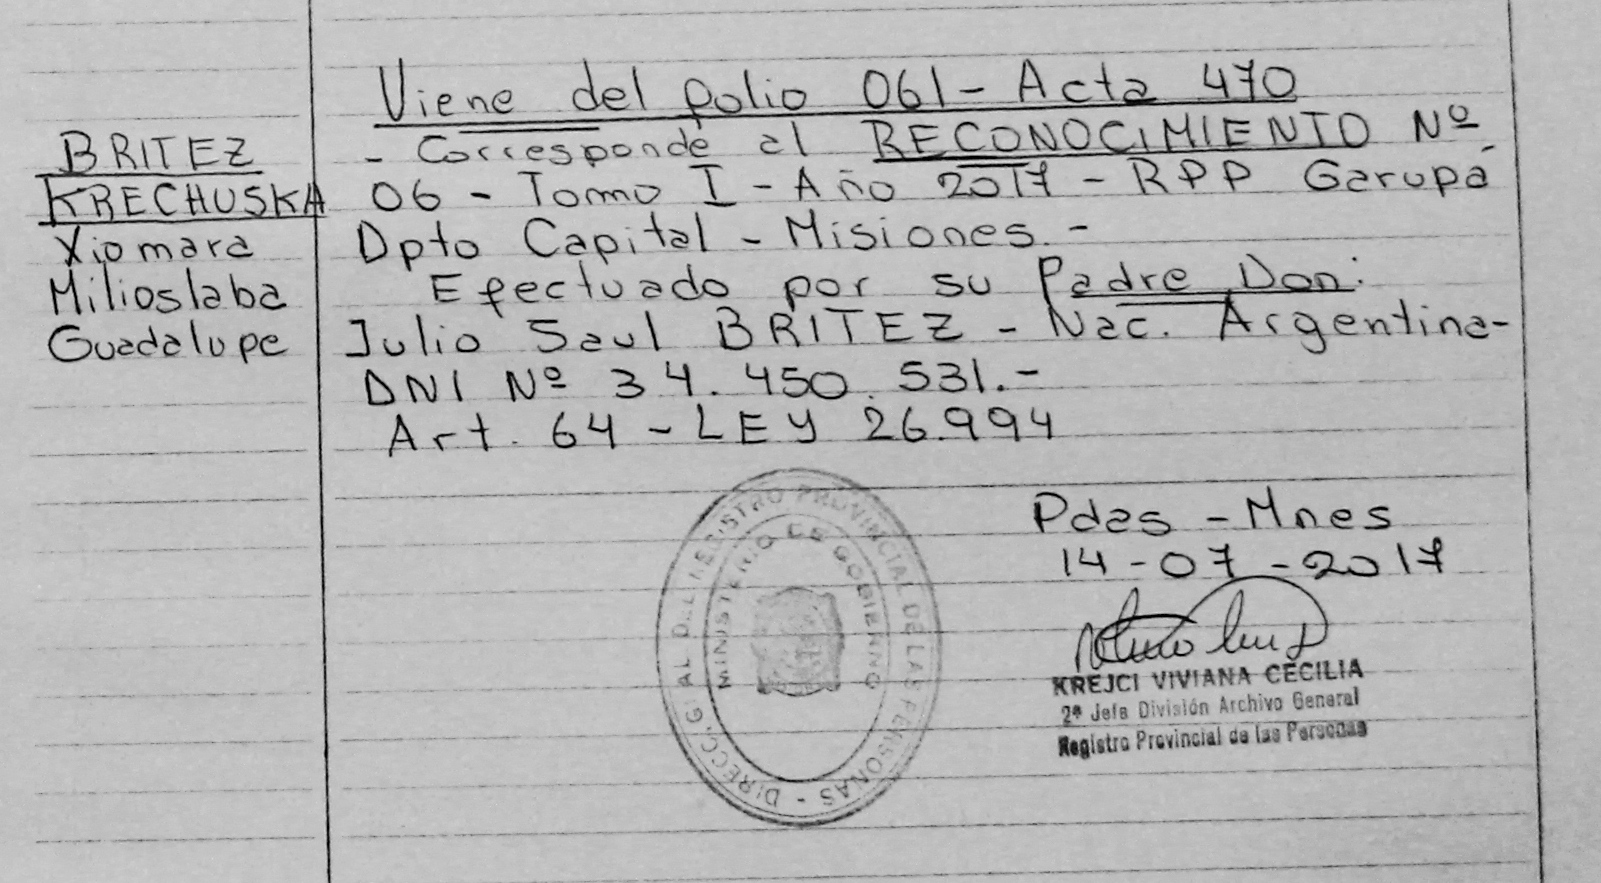 Viene del folio 061 - Acta 470
BRITEZ
KRECHUSKA
Xiomara
Milioslaba
Guadalupe
- Corresponde al RECONOCIMIENTO Nº
06 - Tomo I - Año 2017 - RPP Garupá
Dpto Capital - Misiones. -
Efectuado por su Padre Don:
Julio Saul BRITEZ - Nac. Argentina -
DNI Nº 34.450.531.-
Art. 64 - LEY 26.994
Pdas - Mnes
14-07-2017
KREJCI VIVIANA CECILIA
2ª Jefa División Archivo General
Registro Provincial de las Personas
DIRECC. G AL DEL REGISTRO PROVINCIAL DE LAS PERSONAS -
MINISTERIO DE GOBIERNO